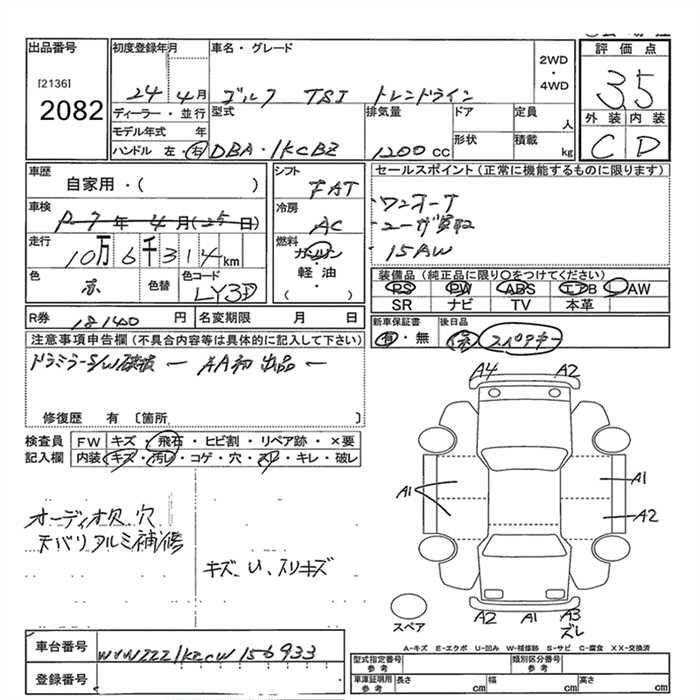 出品番号 初度登録年月 車名・グレード 2WD ・ 4WD 評価点
[2136]
2082
24 4月 ゴルフ TSI トレンドライン
3.5
ディーラー・並行 型式 排気量 ドア 定員 人 外装 内装
モデル年式 年 形状 積載 kg
ハンドル 左・右 DBA・1KCBZ 1200cc C D
車歴 シフト セールスポイント(正常に機能するものに限ります)
自家用・( ) FAT
・ワンオーナ
車検 冷房
P-7年4月(25日) AC
・ユーザ買取
走行 燃料
10万6千314km ガソリン
・15AW
・
色 色替 色コード 軽油 装備品(純正品に限り○をつけてください)
赤 LY3D ( ) PS PW ABS エアB AW
SR ナビ TV 本革
R券 18140円 名変期限 月 日 新車保証書 後日品
有・無 スペアキー
注意事項申告欄(不具合内容等は具体的に記入して下さい)
ドアミラーS/W破損 ー AA初出品 ー
修復歴 有 〔箇所 〕
検査員 FW キズ・飛石・ヒビ割・リペア跡・×要
記入欄 内装 キズ・汚レ・コゲ・穴・スレ・キレ・破レ
A4 A2
A1
A1
A2
オーディオ欠.穴
天バリ アルミ補修
キズ、U、スリキズ
A2 A1 A3
ズレ
スペア
A-キズ E-エクボ U-凹み W-補修跡 S-サビ C-腐食 XX-交換済
車台番号 WVWZZZ1KZCW156933
型式指定番号 参考 類別区分番号 参考
登録番号
車庫証明用 参考 長さ cm 幅 cm 高さ cm